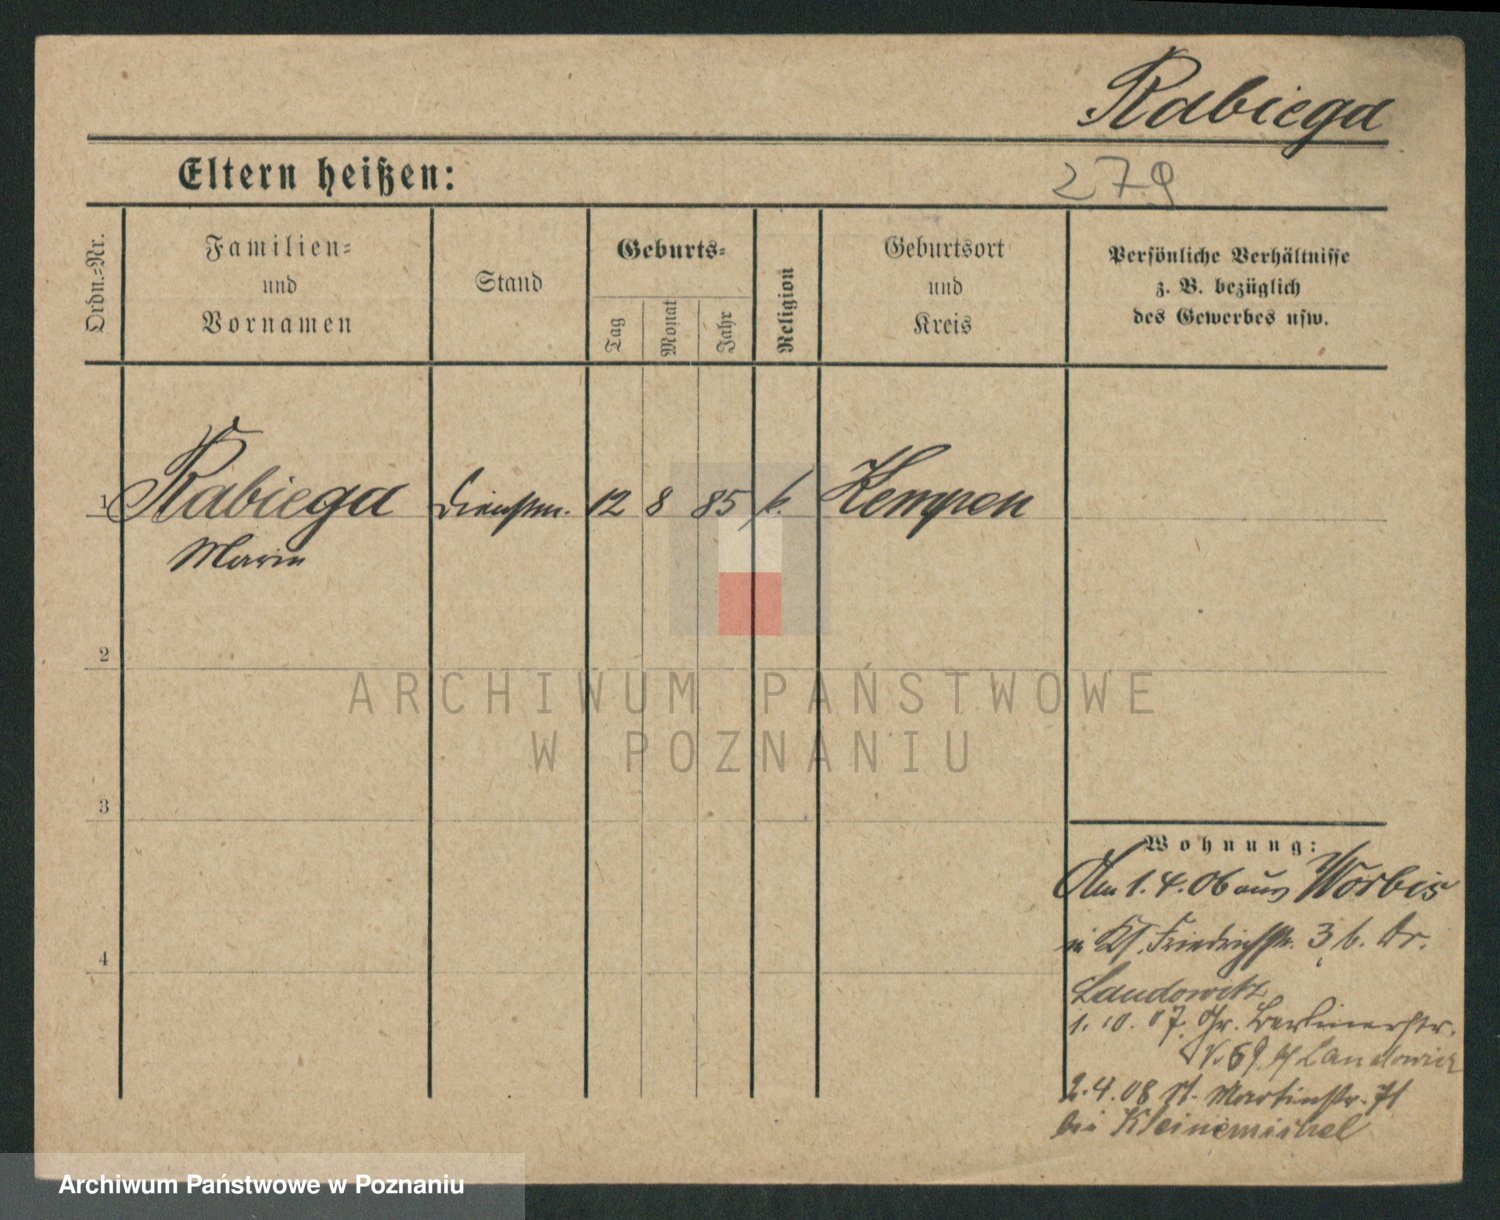 Rabiega
Eltern heißen:
279
Ordn.=Nr.
Familien=
und
Vornamen
Stand
Geburts=
Tag
Monat
Jahr
Religion
Geburtsort
und
Kreis
Persönliche Verhältnisse
z. B. bezüglich
des Gewerbes usw.
1 Rabiega Dienstm. 12 8 85 k. Kempen
Marie
2
ARCHIWUM PAŃSTWOWE
W POZNANIU
3
4
Wohnung:
Am 1.4.06 aus Worbis
Friedrichstr. 3 b. Dr.
Landowitz
1.10.07. Gr. Berlinerstr.
69 Landowicz
2.4.08 St. Martinstr. 71
bei Kleinmichel
Archiwum Państwowe w Poznaniu